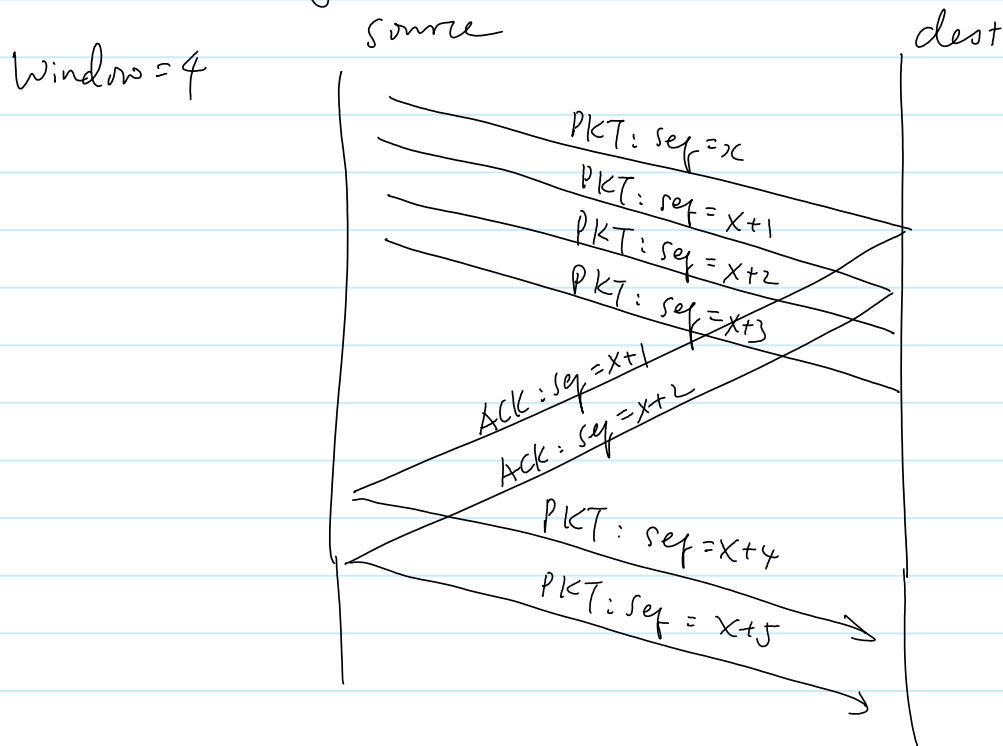 source
dest
Window = 4
PKT: seq = x
PKT: seq = x+1
PKT: seq = x+2
PKT: seq = x+3
ACK: seq = x+1
ACK: seq = x+2
PKT: seq = x+4
PKT: seq = x+5